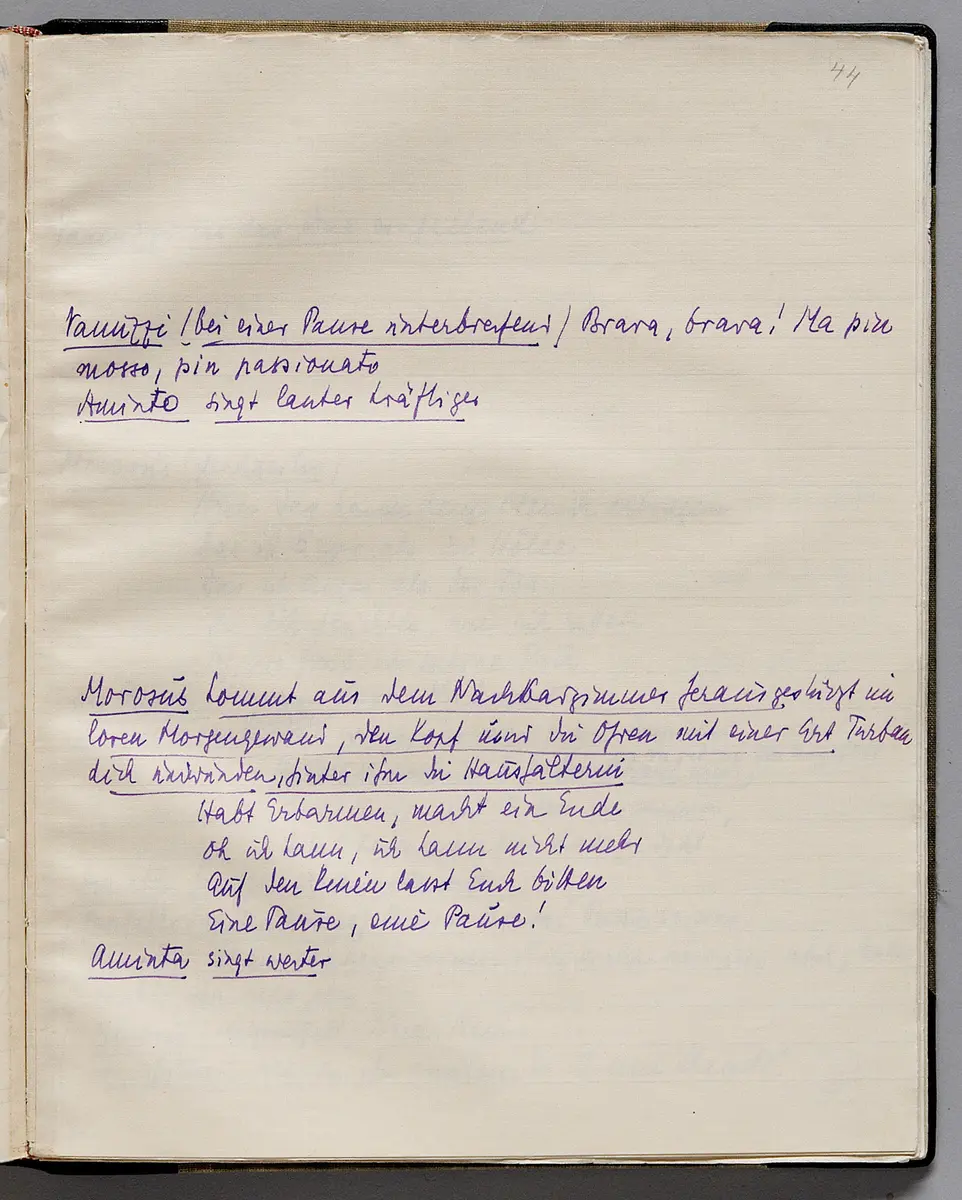 44
Vanuzzi (bei einer Pause unterbrechend) Brava, brava! Ma piu
mosso, piu passionato
Aminta singt lauter kräftiger
Morosus kommt aus dem Nachbarzimmer herausgestürzt im
losen Morgengewand, den Kopf und die Ohren mit einer Art Turban
dick umwunden, hinter ihm die Haushälterin
Habt Erbarmen, macht ein Ende
oh ich kann, ich kann nicht mehr
Auf den Knien lasst Euch bitten
Eine Pause, eine Pause!
Aminta singt weiter